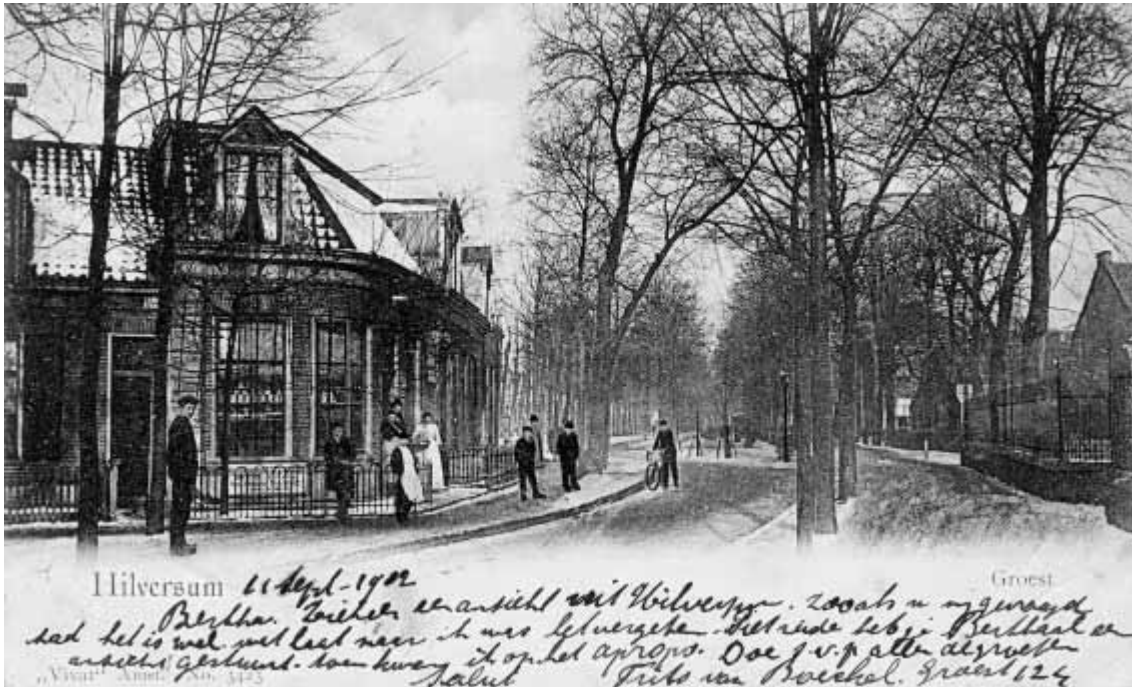 Hilversum 11 Sept - 1902
Groest
Bertha. Ziehier een ansicht uit Hilversum. zooals u mij gevraagd
had het is wel wat laat maar ik was het vergeten. heb je Berthaal een
ansicht gestuurd. toen kwam ik op het apropo. Doe s.v.p allen de groeten
"Vivat" Amst. No. 3423
Salut Frits van Boeckel. Groest 124